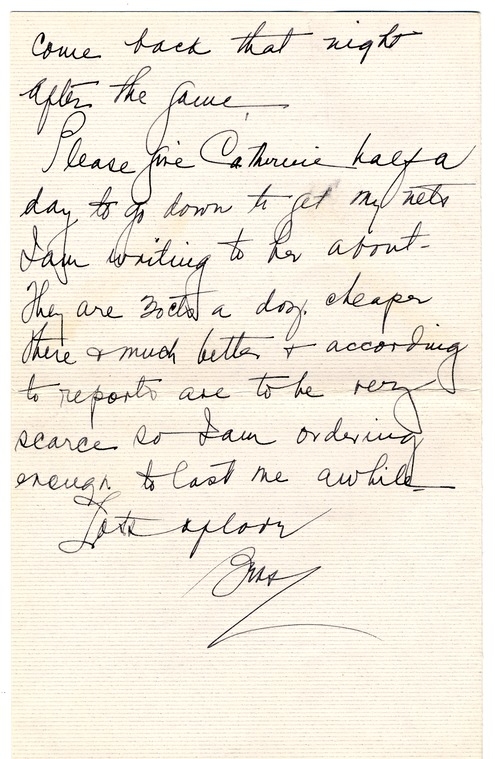 come back that night
after the game
Please give Catherine half a
day to go down to get my nets
I am writing to her about-
They are 30cts a doz. cheaper
there & much better & according
to reports are to be very
scarce so I am ordering
enough to last me awhile
Lots of love